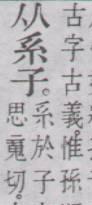 古字古義惟孫
从系子。
系於子
思䰟切。